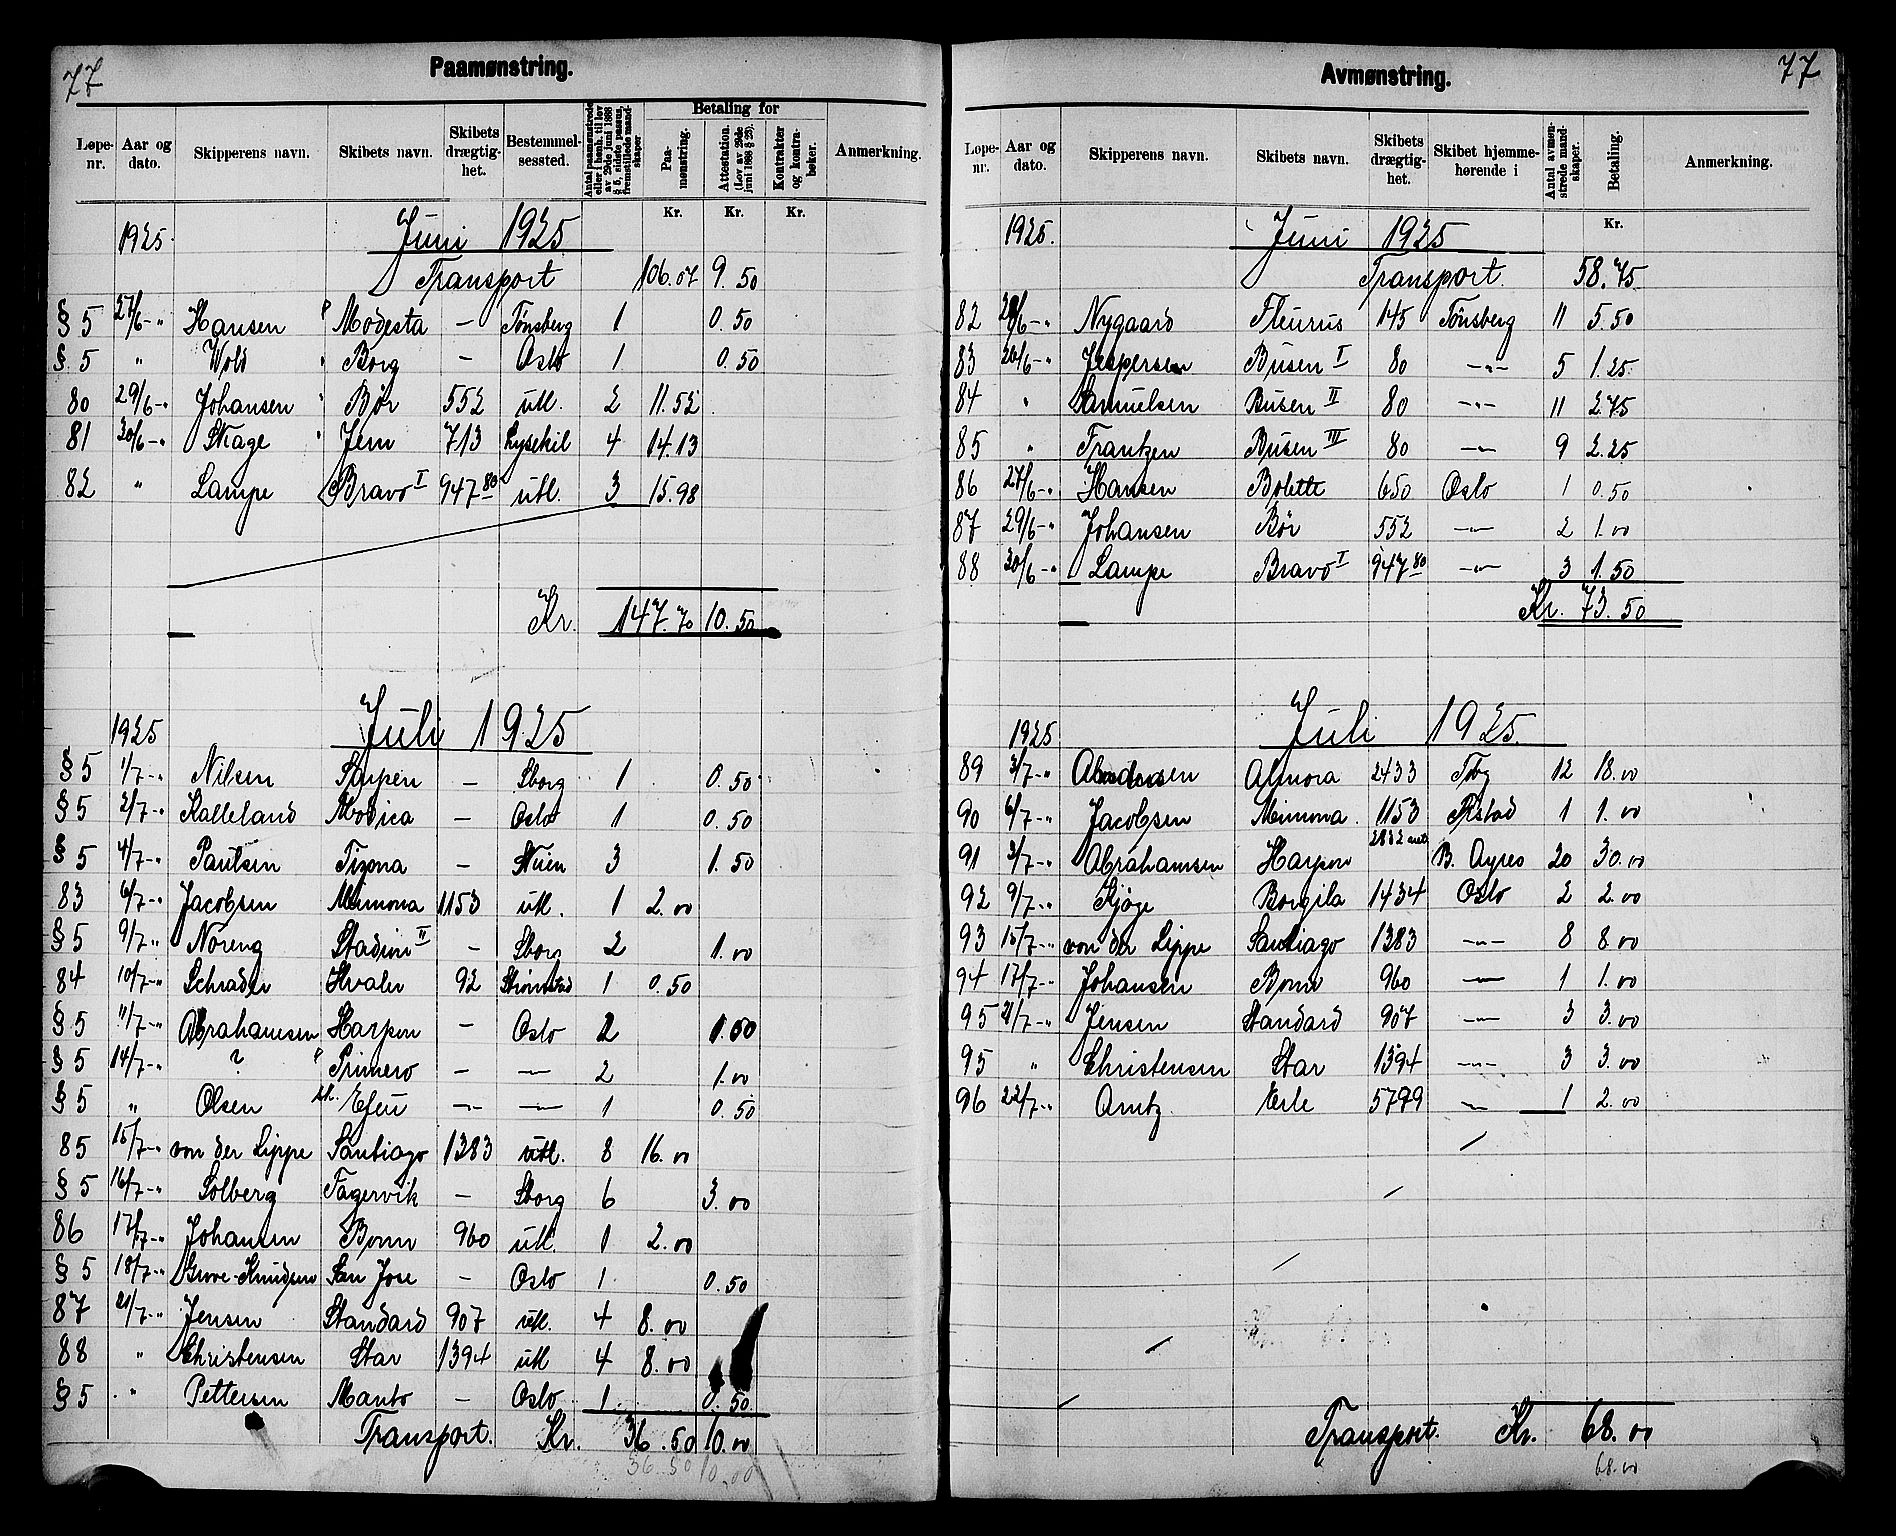 77
Paamønstring.
Løpe-nr. | Aar og dato. | Skipperens navn. | Skibets navn. | Skibets drægtig-het. | Bestemmel-sessted. | Antal paamønstrede eller i henh. til lov av 29de juni 1888 § 5, sidste passus, fremstillede mand-skaper | Betaling for | Paa-mønstring. Kr. | Attestation. (Lov av 29de juni 1888 § 23). Kr. | Kontrakter og kontra-bøker. Kr. | Anmerkning.
1925. Juni 1925
Transport 106.07 9.50
§ 5 27/6 -„ Hansen Modesta — Tønsberg 1 0.50
§ 5 „ Wold Borg — Oslo 1 0.50
80 29/6 -„ Johansen Bør 552 utl. 2 11.52
81 30/6 -„ Skage Jem 713 Lysekil 4 14.13
82 „ Lampe Bravo I 947 80 utl. 3 15.98
Kr. 147.70 10.50
1925 Juli 1925
§ 5 1/7 -„ Nilsen Sarpen — Sborg 1 0.50
§ 5 2/7 -„ Kalleland Modica — Oslo 1 0.50
§ 5 4/7 -„ Paulsen Tizona — 3 1.50
83 6/7 -„ Jacobsen Mimona 1153 utl. 1 2.00
§ 5 9/7 „ Noreng Stadion II — Sborg 2 1.00
84 10/7 -„ Schrader Hvaler 92 Strömstad 1 0.50
§ 5 11/7 -„ Abrahamsen Harpon — Oslo 2 1.00
§ 5 14/7 -„ ? Primero — —„— 2 1.00
§ 5 „ Olsen Efeu —„— —„— 1 0.50
85 15/7 -„ von der Lippe Santiago 1383 utl. 8 16.00
§ 5 16/7 -„ Solberg Fagervik — Sborg 6 3.00
86 17/7 -„ Johansen Bonn 960 utl. 1 2.00
§ 5 18/7 -„ Greve-Knudsen San Jose — Oslo 1 0.50
87 21/7 -„ Jensen Standard 907 utl. 4 8.00
88 „ Christensen Star 1394 utl 4 8.00
§ 5 „ Pettersen Manto — Oslo 1 0.50
Transport. Kr. 36.50 10.00
36.50 10.00
77
Avmønstring.
Løpe-nr. | Aar og dato. | Skipperens navn. | Skibets navn. | Skibets drægtig-het. | Skibet hjemme-hørende i | Antal avmøn-strede mand-skaper. | Betaling. Kr. | Anmerkning.
1925. Juni 1925
Transport. 58.75
82 20/6 -„ Nygaard Fleurus 145 Tönsberg 11 5.50
83 20/6 -„ Jespersen Busen I 80 —„— 5 1.25
84 „ Samuelsen Busen II 80 —„— 11 2.75
85 „ Frantzen Busen III 80 —„— 9 2.25
86 27/6 -„ Hansen Bolette 650 Oslo 1 0.50
87 29/6 -„ Johansen Bör 552 —„— 2 1.00
88 30/6 -„ Lampe Bravo I 947 80 —„— 3 1.50
Kr. 73.50
1925 Juli 1925.
89 3/7 -„ Almora 2433 Tbg 12 18.00
90 6/7 -„ Jacobsen Mimona. 1153 1 1.00
91 3/7 -„ Abrahamsen Harpon 2832 B. Ayres 20 30.00
92 9/7 -„ Kjöge Borgila 1434 Oslo 2 2.00
93 15/7 -„ von der Lippe Santiago 1383 —„— 8 8.00
94 17/7 -„ Johansen Bonn 960 —„— 1 1.00
95 21/7 -„ Jensen Standard 907 —„— 3 3.00
95 „ Christensen Star 1394 —„— 3 3.00
96 22/7 -„ Arntz Erle 5779 —„— 1 2.00
Transport. Kr. 68.00
68.00